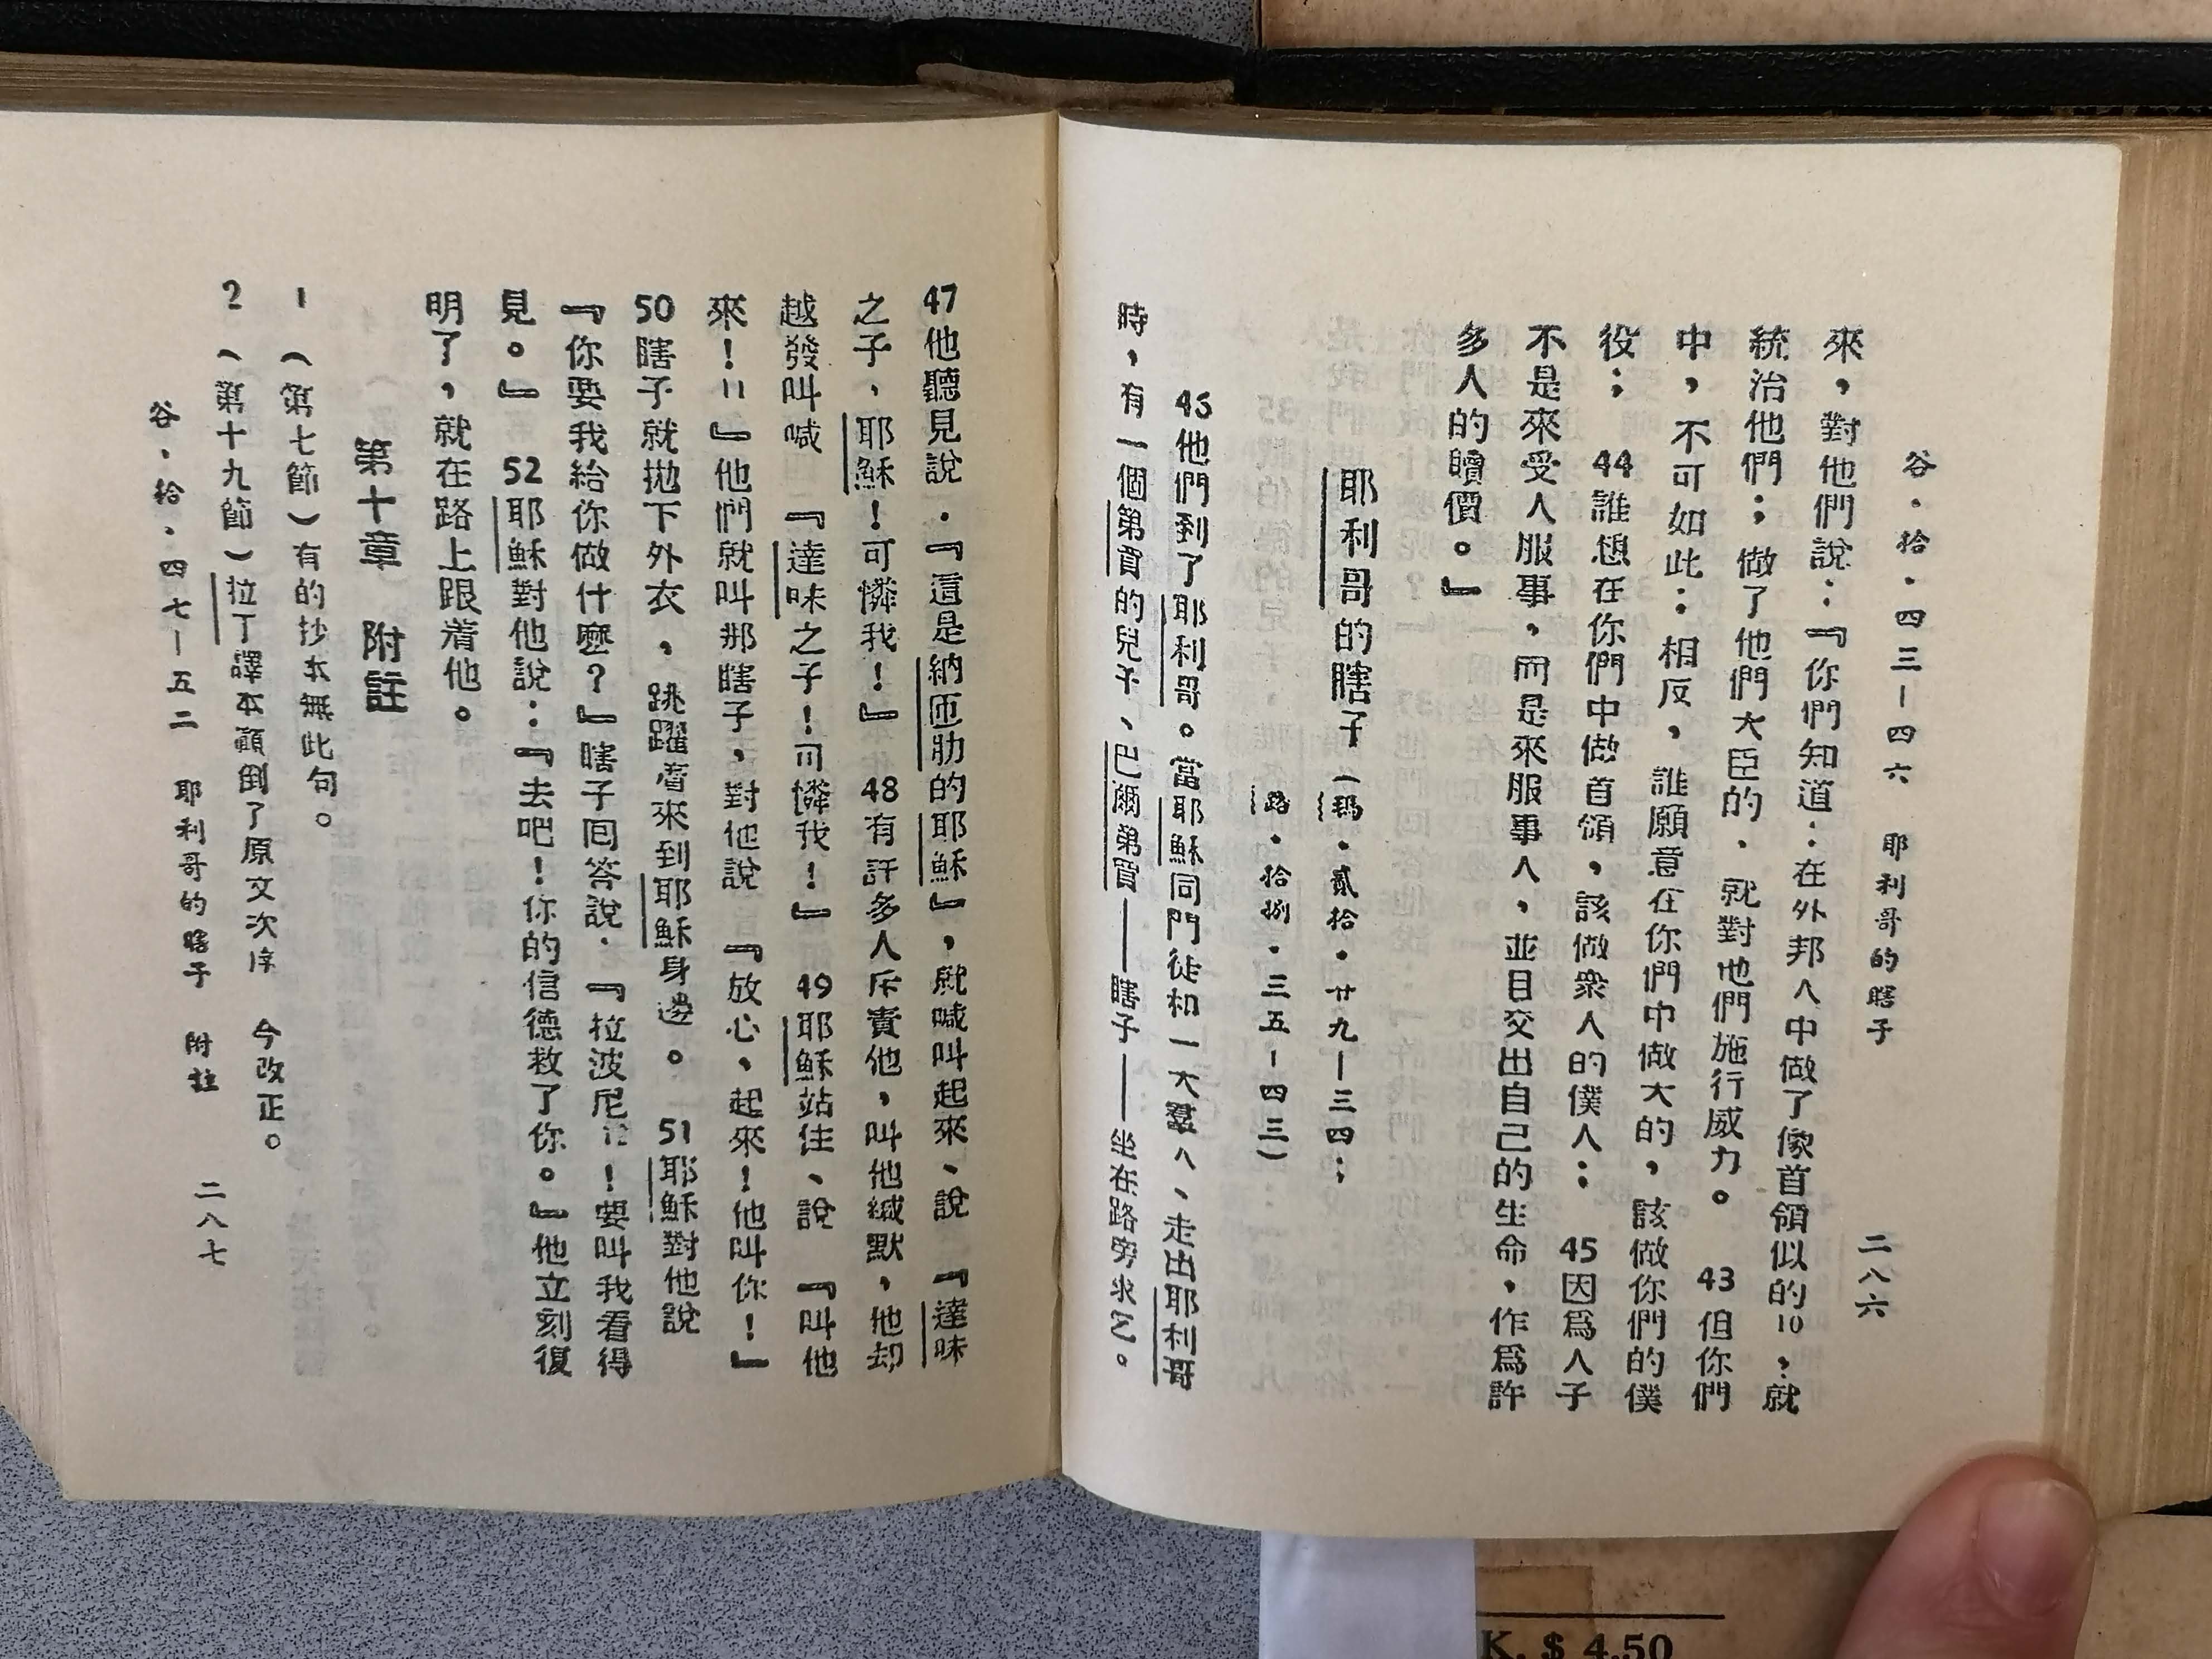 谷．拾．四三—四六　耶利哥的瞎子　二八六
來，對他們說：『你們知道：在外邦人中做了像首領似的10，就
統治他們；做了他們大臣的、就對他們施行威力。　43但你們
中，不可如此：相反，誰願意在你們中做大的，該做你們的僕
役；　44誰想在你們中做首領，該做衆人的僕人；　45因爲人子
不是來受人服事，而是來服事人，並且交出自己的生命，作爲許
多人的贖價。』
耶利哥的瞎子（瑪．貳拾．廿九—三四；
路．拾捌．三五—四三）
46他們到了耶利哥。當耶穌同門徒和一大羣人、走出耶利哥
時，有一個第買的兒子、巴爾第買——瞎子——坐在路旁求乞。
47他聽見說．『這是納匝肋的耶穌』，就喊叫起來、說：『達味
之子，耶穌！可憐我！』　48有許多人斥責他，叫他緘默，他却
越發叫喊　『達味之子！可憐我！』　49耶穌站住、說　『叫他
來！11』他們就叫那瞎子，對他說　『放心，起來！他叫你！』
50瞎子就拋下外衣，跳躍着來到耶穌身邊。　51耶穌對他說
『你要我給你做什麼？』瞎子囘答說．『拉波尼12！要叫我看得
見。』　52耶穌對他說：『去吧！你的信德救了你。』他立刻復
明了，就在路上跟着他。
第十章　附註
1　（第七節）有的抄本無此句。
2　（第十九節）拉丁譯本顚倒了原文次序　今改正。
谷．拾．四七—五二　耶利哥的瞎子　附註　二八七
K. $ 4.50